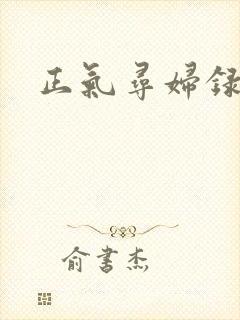 正氣尋婦録
俞書杰